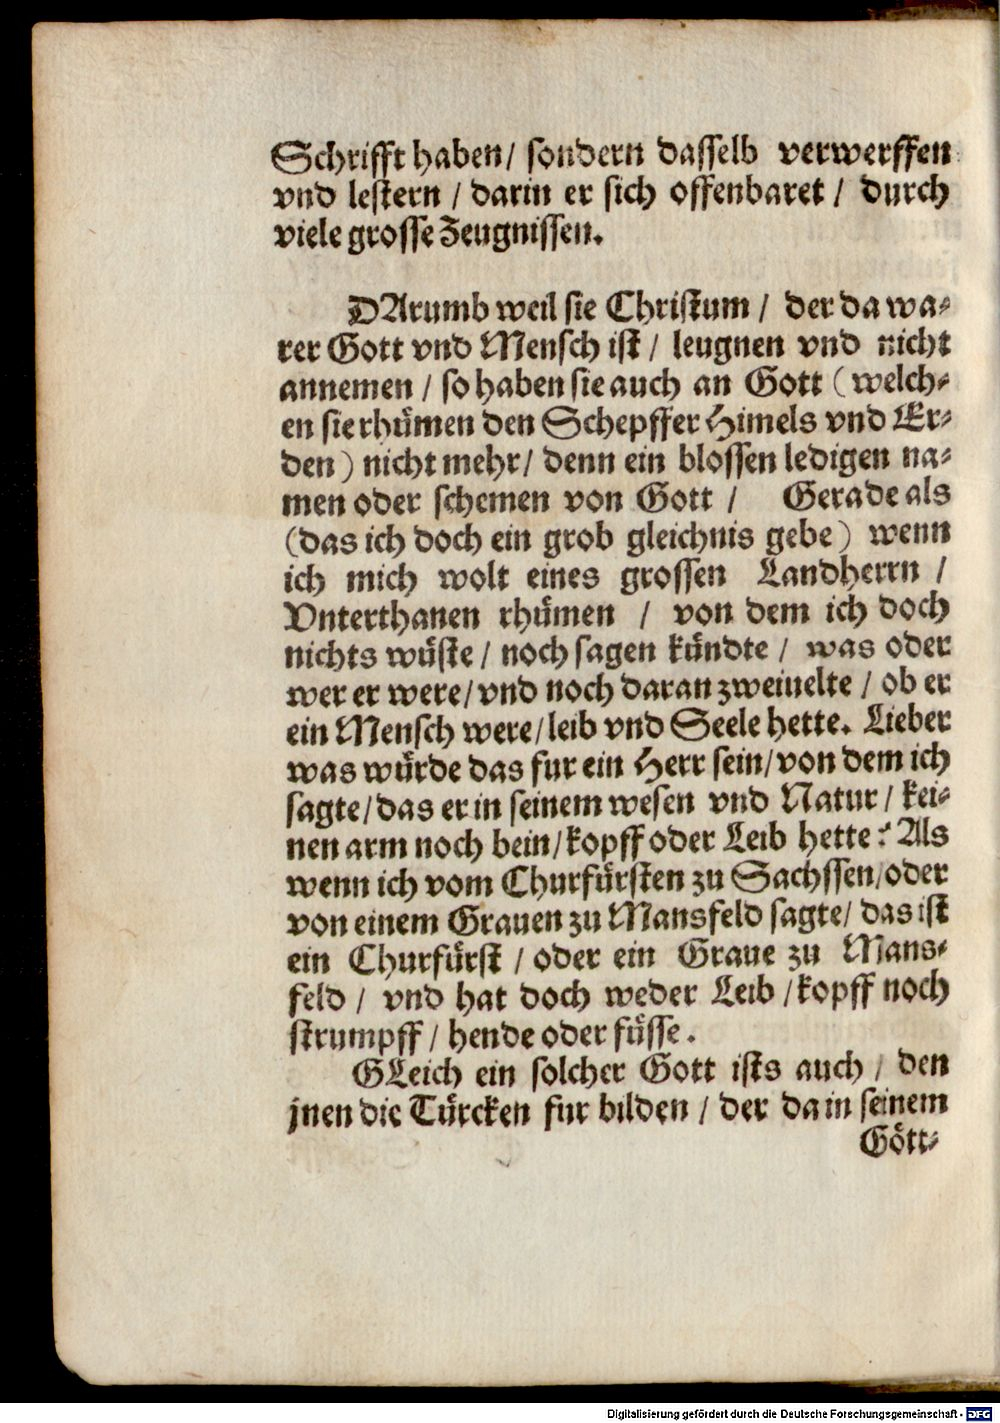 Schrifft haben / sondern dasselb verwerffen
vnd lestern / darin er sich offenbaret / durch
viele grosse Zeugnissen.
DArumb weil sie Christum / der da wa-
rer Gott vnd Mensch ist / leugnen vnd nicht
annemen / so haben sie auch an Gott (welch-
en sie rhümen den Schepffer Himels vnd Er-
den) nicht mehr / denn ein blossen ledigen na-
men oder schemen von Gott / Gerade als
(das ich doch ein grob gleichnis gebe) wenn
ich mich wolt eines grossen Landherrn /
Vnterthanen rhümen / von dem ich doch
nichts wüste / noch sagen kündte / was oder
wer er were / vnd noch daran zweiuelte / ob er
ein Mensch were / leib vnd Seele hette. Lieber
was würde das fur ein Herr sein / von dem ich
sagte / das er in seinem wesen vnd Natur / kei-
nen arm noch bein / kopff oder Leib hette? Als
wenn ich vom Churfürsten zu Sachssen / oder
von einem Grauen zu Mansfeld sagte / das ist
ein Churfürst / oder ein Graue zu Mans-
feld / vnd hat doch weder Leib / kopff noch
strumpff / hende oder füsse.
GLeich ein solcher Gott ists auch / den
jnen die Türcken fur bilden / der da in seinem
Gött-
Digitalisierung gefördert durch die Deutsche Forschungsgemeinschaft - DFG